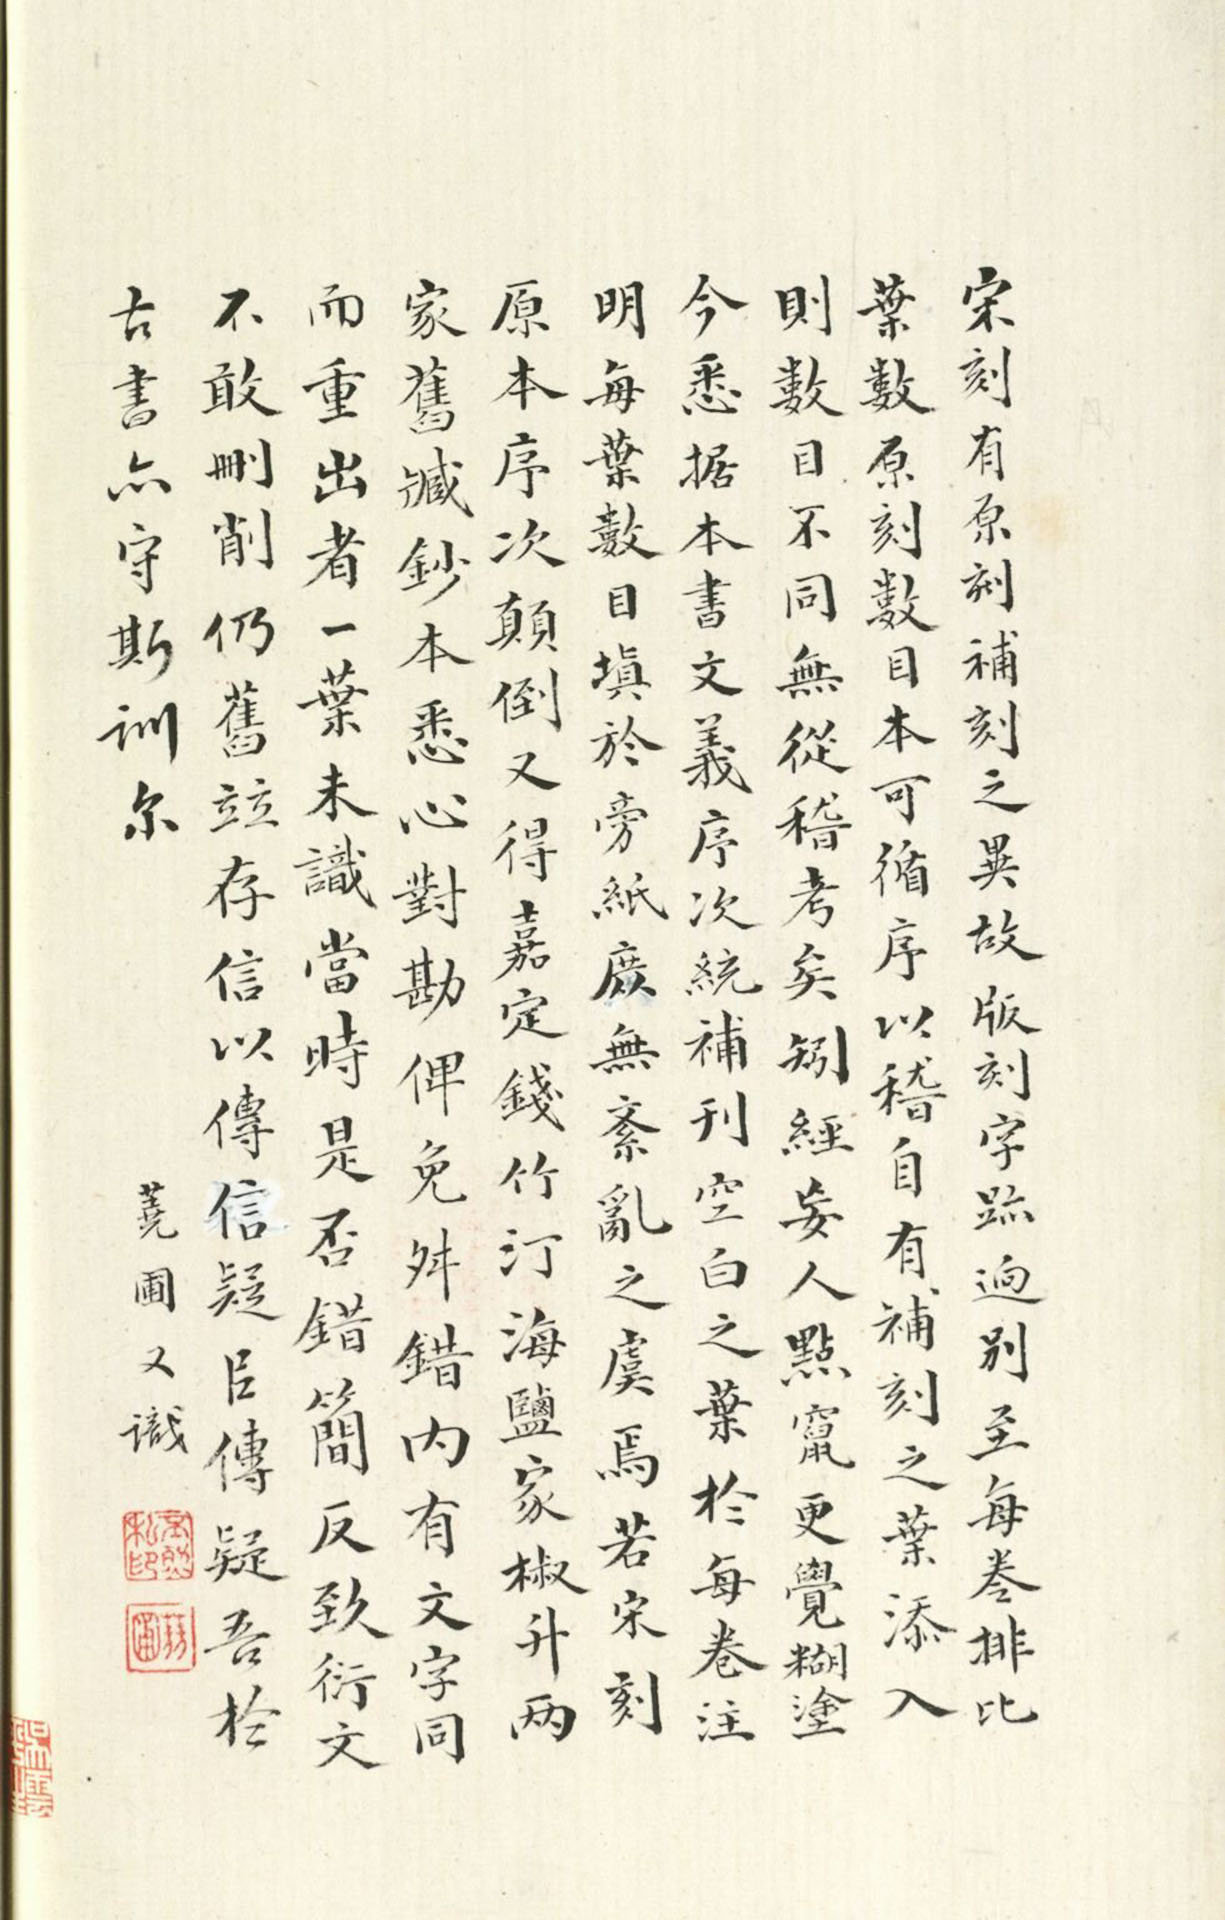 宋刻有原刻補刻之異故版刻字跡迥別至每卷排比
葉數原刻數目本可循序以稽自有補刻之葉添入
則數目不同無從稽考矣矧經妄人點竄更覺糊塗
今悉据本書文義序次統補刊空白之葉於每卷注
明每葉數目填於旁紙庶無紊亂之虞焉若宋刻
原本序次顛倒又得嘉定錢竹汀海鹽家椒升兩
家舊臧鈔本悉心對勘俾免舛錯內有文字同
而重出者一葉未識當時是否錯簡反致衍文
不敢刪削仍舊竝存信以傳信疑㠯傳疑吾於
古書亦守斯訓尔
蕘圃又識